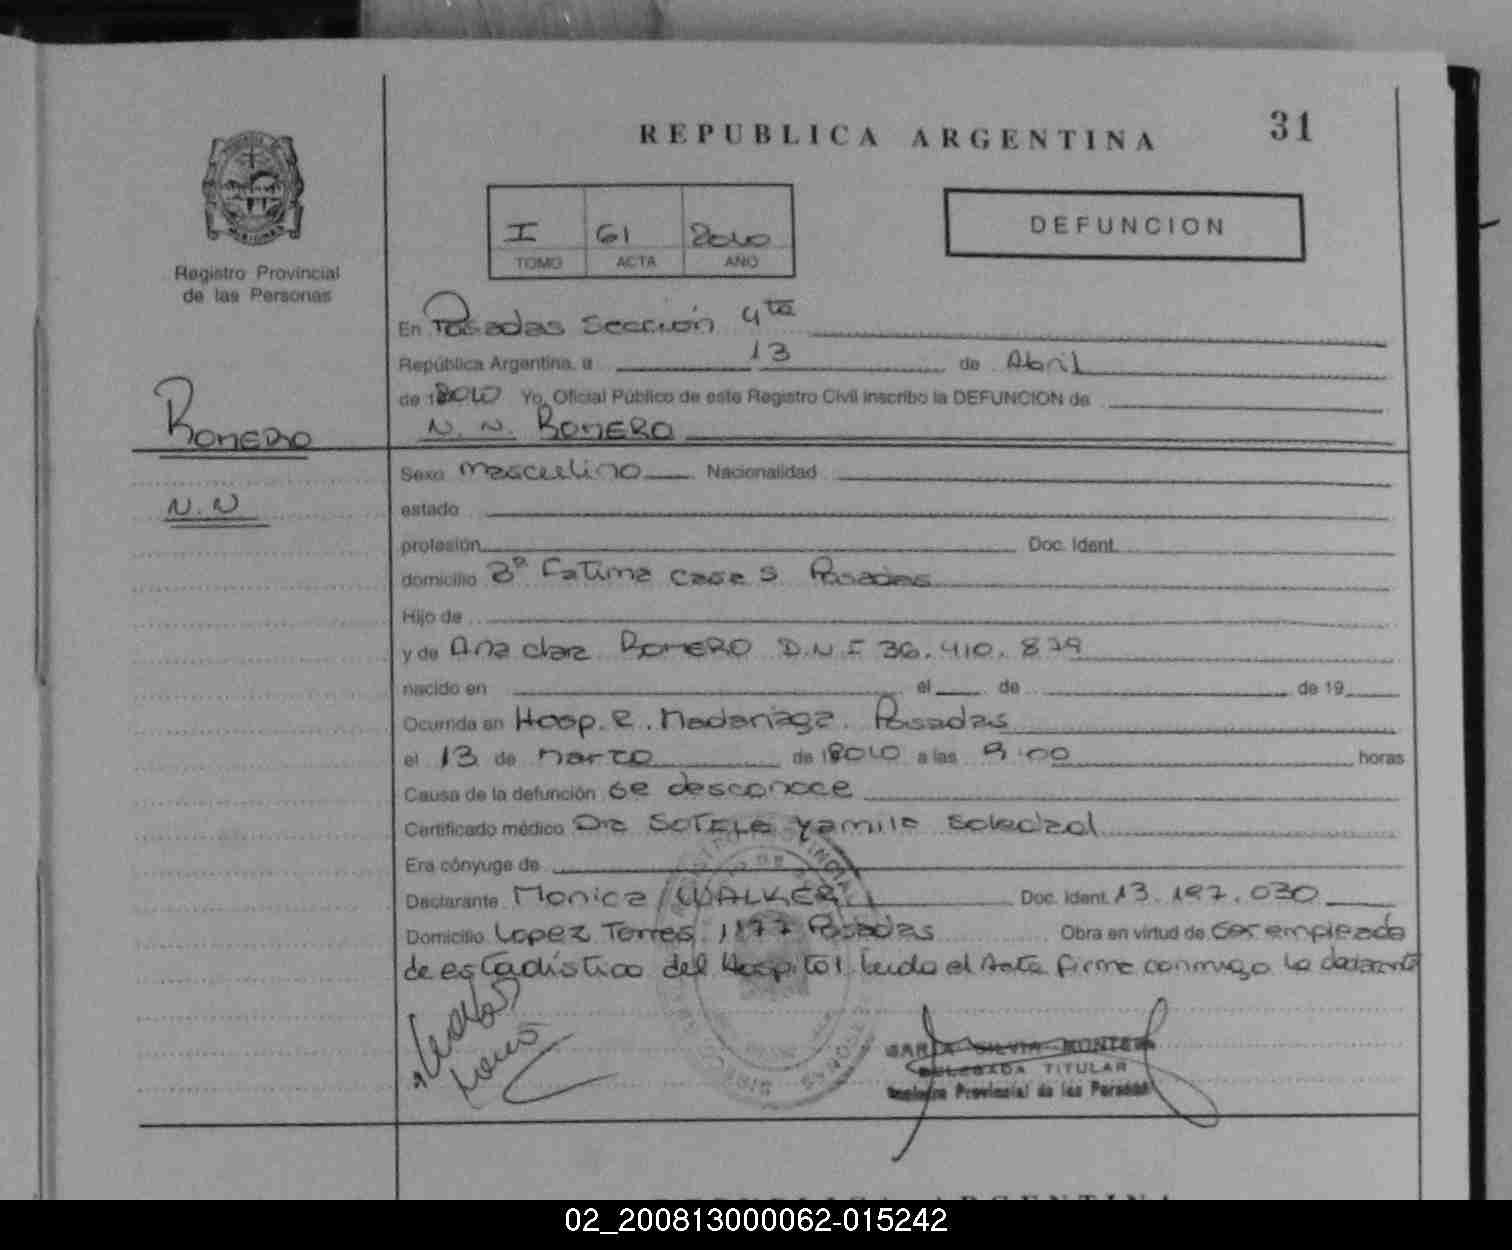 REPUBLICA ARGENTINA 31
I 61 2010
TOMO ACTA AÑO
DEFUNCION
Registro Provincial
de las Personas
En Posadas Sección 4ta
República Argentina, a 13 de Abril
de 2010 Yo, Oficial Público de este Registro Civil inscribo la DEFUNCION de
Romero
N. N. ROMERO
Sexo masculino Nacionalidad
N.N
estado
profesión Doc. Ident.
domicilio Bº Fatima casa 5 Posadas
Hijo de
y de Ana Clara ROMERO D.N.I 36.410.879
nacido en el de de 19
Ocurrida en Hosp. R. Madariaga. Posadas
el 13 de marzo de 2010 a las 9:00 horas
Causa de la defunción se desconoce
Certificado médico Dra SOTELO Yamila Soledad
Era cónyuge de
Declarante Monica WALKER Doc. Ident. 13.197.030
Domicilio Lopez Torres 1177 Posadas Obra en virtud de ser empleada
de estadística del Hospital leída el Acta firma conmigo la declarante
MARIA SILVIA
DELEGADA TITULAR
Registro Provincial de las Personas
REPUBLICA ARGENTINA
02_200813000062-015242